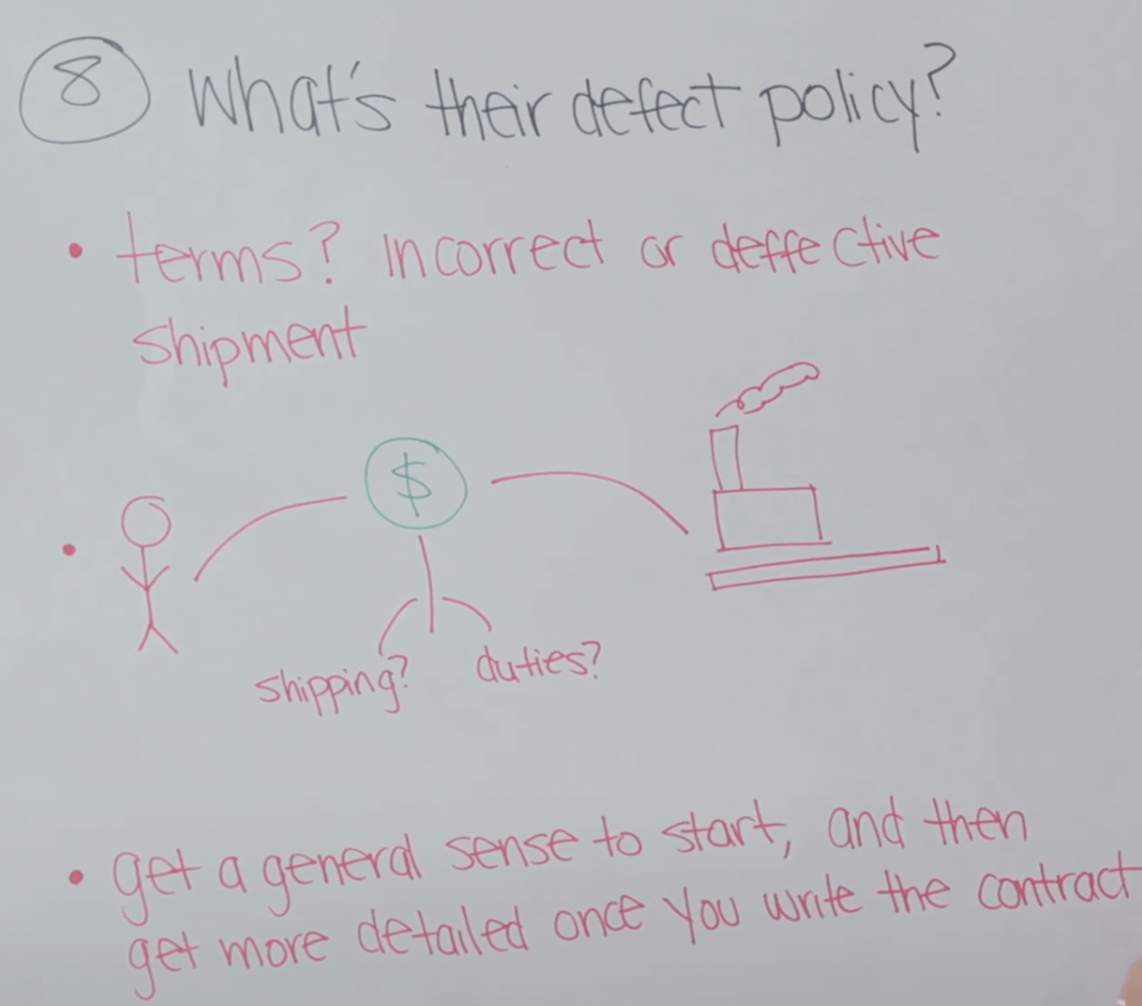 8 What's their defect policy?
• terms? Incorrect or deffective
shipment
$
•
shipping? duties?
• get a general sense to start, and then
get more detailed once you write the contract